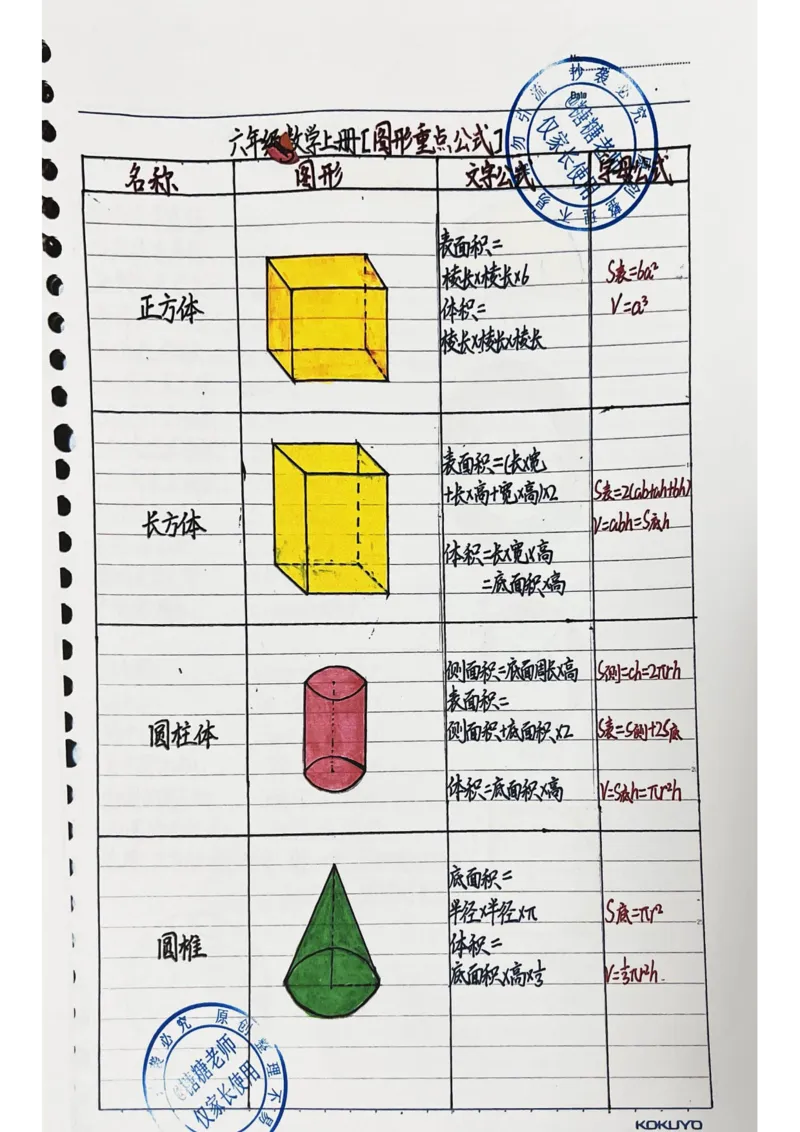 六年级数学上册[图形重点公式]
名称 图形 文字公式 字母公式
正方体
表面积=
棱长×棱长×6
体积=
棱长×棱长×棱长
S表=6a²
V=a³
长方体
表面积=(长×宽
+长×高+宽×高)×2
体积=长×宽×高
=底面积×高
S表=2(ab+ah+bh)
V=abh=S底h
圆柱体
侧面积=底面周长×高
表面积=
侧面积+底面积×2
体积=底面积×高
S侧=ch=2πrh
S表=S侧+2S底
V=S底h=πr²h
圆椎
底面积=
半径×半径×π
体积=
底面积×高×⅓
S底=πr²
V=⅓πr²h.
Date
@糖糖老师
仅家长使用
原创整理不易
勿引流 抄袭必究
@糖糖老师
仅家长使用
袭必究 原创整理不易
KOKUYO